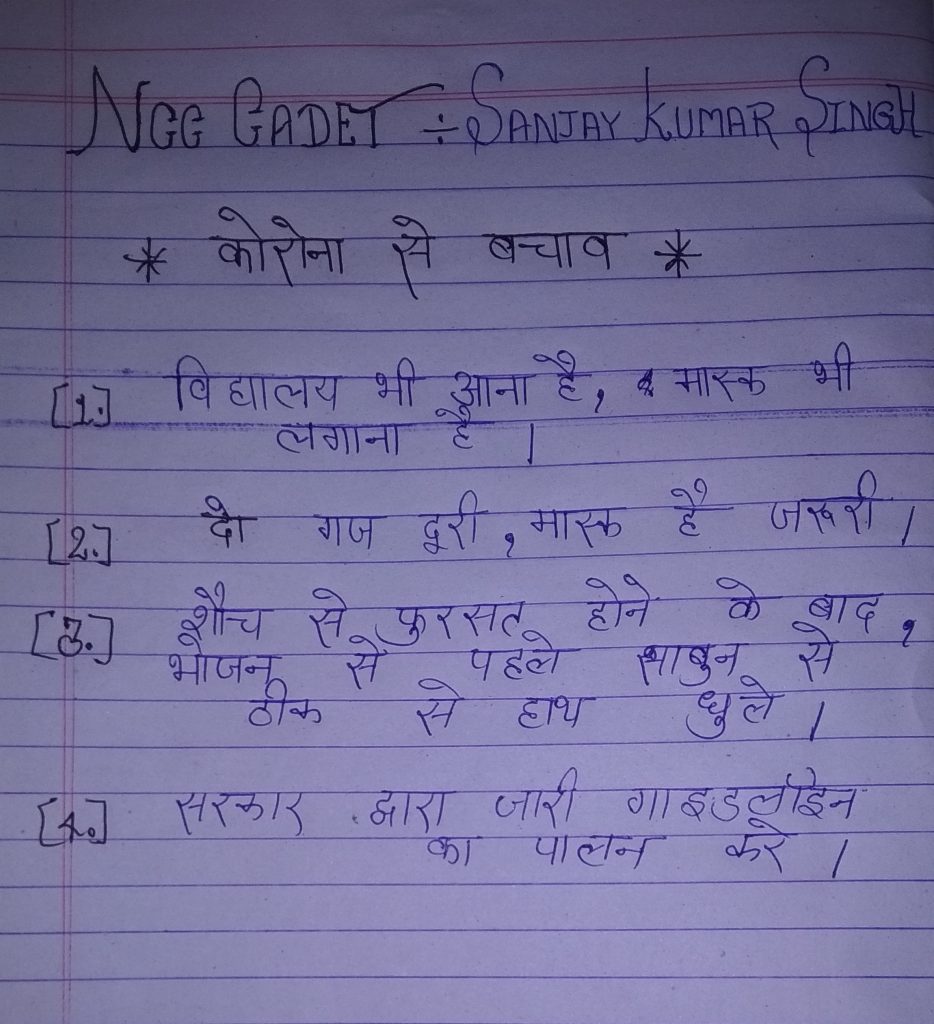 NCC CADET ÷ SANJAY KUMAR SINGH
* कोरोना से बचाव *
[1.] विद्यालय भी आना है, मास्क भी
लगाना है।
[2.] दो गज दूरी, मास्क है जरूरी।
[3.] शौच से फुरसत होने के बाद,
भोजन से पहले साबुन से
ठीक से हाथ धुले।
[4.] सरकार द्वारा जारी गाइडलाईन
का पालन करे।